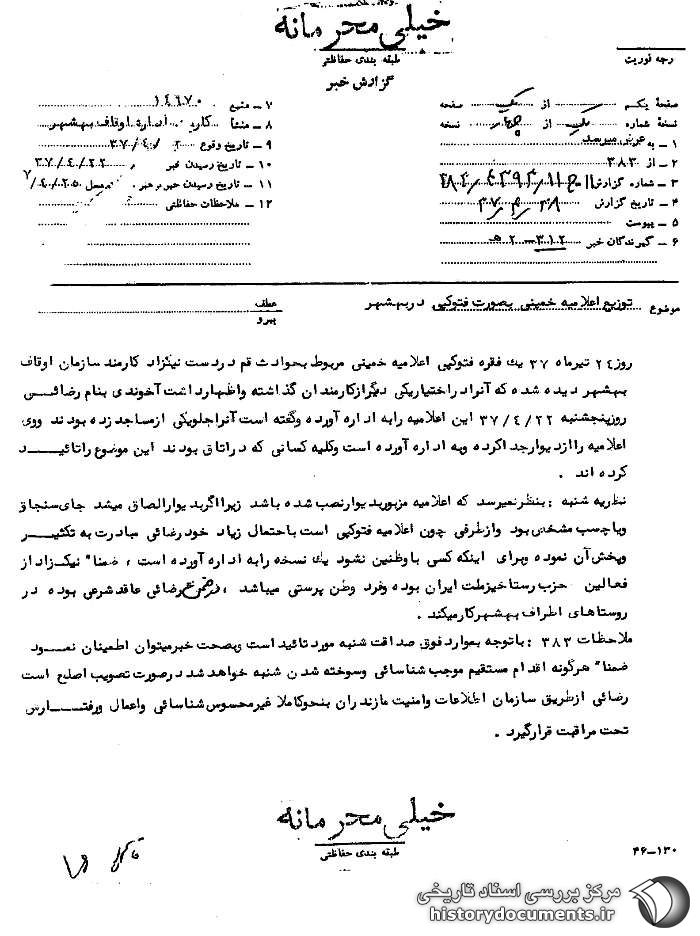 خیلی محرمانه
طبقه بندی حفاظتی
درجه فوریت
گزارش خبر
صفحهٔ یکم از یک صفحه
نسخهٔ شماره یک از چهار نسخه
۱ – به عرض میرسد
۲ – از ۳۸۳
۳ – شماره گزارش
۴ – تاریخ گزارش
۵ – پیوست
۶ – گیرندگان خبر ۳۱۲
۷ – منبع ۱۴۶۷۰
۸ – منشأ کارمند اداره اوقاف بهشهر
۹ – تاریخ وقوع
۱۰ – تاریخ رسیدن خبر ۳۷/۴/۲۲
۱۱ – تاریخ رسیدن خبر به رهبر
۱۲ – ملاحظات حفاظتی
موضوع توزیع اعلامیه خمینی بصورت فتوکپی در بهشهر
عطف
پیرو
روز ۲٤ تیرماه ۳۷ یك فقره فتوکپی اعلامیه خمینی مربوط بحوادث قم در دست نیکزاد کارمند سازمان اوقاف
بهشهر دیده شده که آنرا در اختیار یکی دیگر از کارمندان گذاشته و اظهار داشت آخوندی بنام رضائی
روز پنجشنبه ۳۷/٤/۲۲ این اعلامیه را به اداره آورده و گفته است آنرا جلو یکی از مساجد زده بودند و وی
اعلامیه را از دیوار جدا کرده و به اداره آورده است و کلیه کسانی که در اتاق بودند این موضوع را تائید
کرده اند .
نظریه شنبه : بنظر نمیرسد که اعلامیه مزبور بدیوار نصب شده باشد زیرا اگر بدیوار الصاق میشد جای سنجاق
و یا چسب مشخص بود و از طرفی چون اعلامیه فتوکپی است باحتمال زیاد خود رضائی مبادرت به تکثیر
و پخش آن نموده و برای اینکه کسی باو ظنین نشود یك نسخه را به اداره آورده است ، ضمنا" نیکزاد از
فعالین حزب رستاخیز ملت ایران بوده و فرد وطن پرستی میباشد ، رضائی عاقد شرعی بوده در
روستاهای اطراف بهشهر کار میکند .
ملاحظات ۳۸۳ : با توجه بموارد فوق صداقت شنبه مورد تائید است و بصحت خبر میتوان اطمینان نمود
ضمنا" هرگونه اقدام مستقیم موجب شناسائی و سوخته شدن شنبه خواهد شد در صورت تصویب اصلح است
رضائی از طریق سازمان اطلاعات و امنیت مازندران بنحو کاملا غیر محسوس شناسائی و اعمال و رفتارش
تحت مراقبت قرار گیرد .
خیلی محرمانه
طبقه بندی حفاظتی
۴۶–۱۳۰
مرکز بررسی اسناد تاریخی
historydocuments.ir